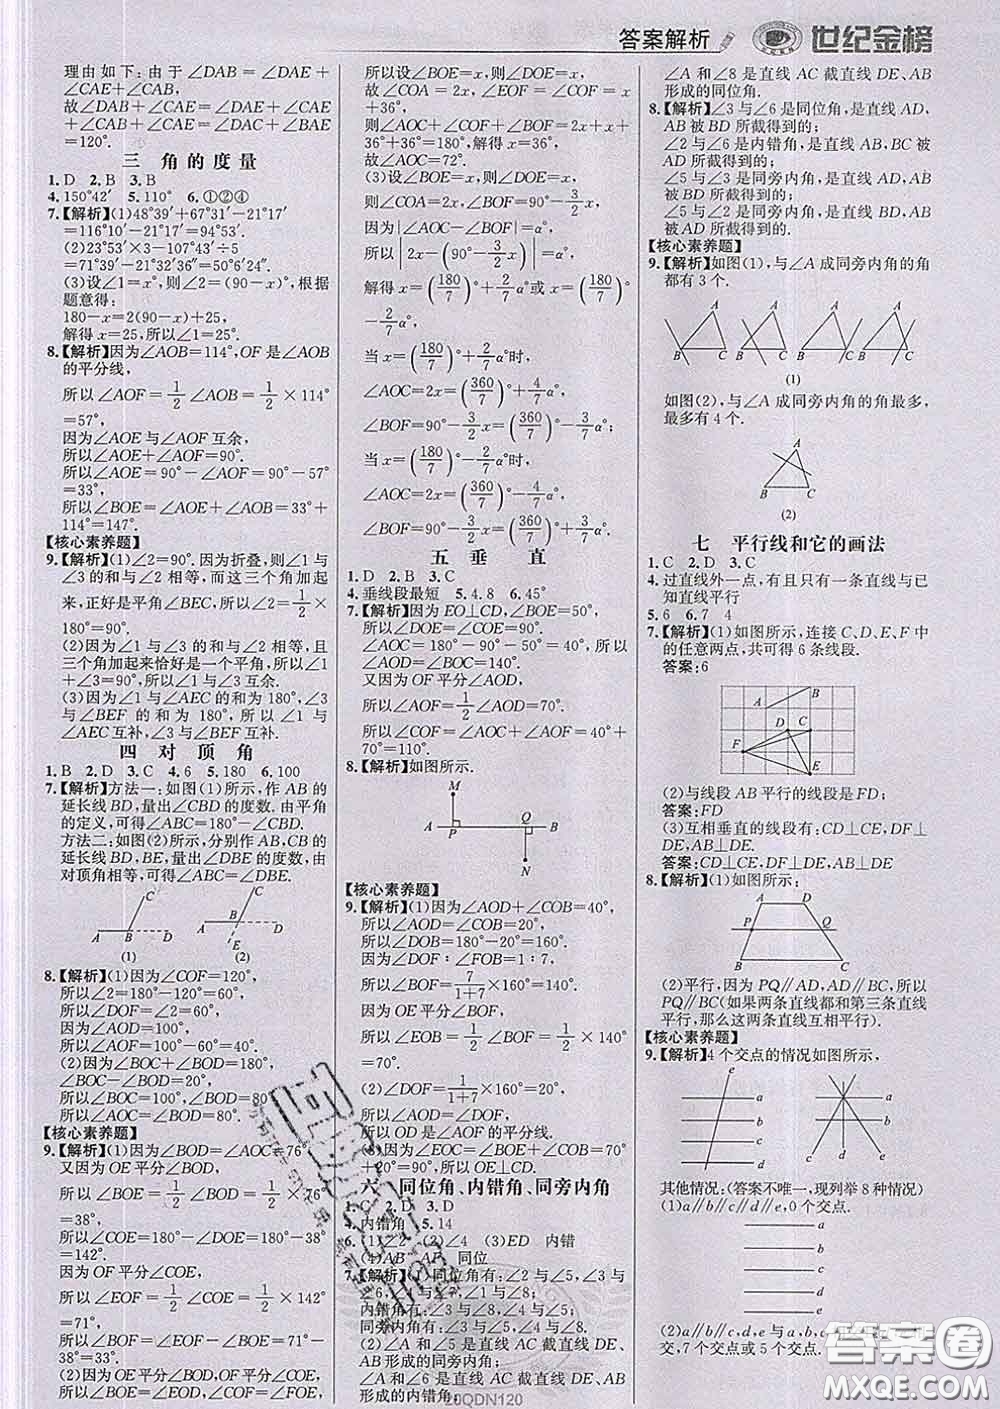 答案解析
世纪金榜
理由如下:由于∠DAB=∠DAE+
∠CAE+∠CAB,
故∠DAB+∠CAE=∠DAE+∠CAE
+∠CAB+∠CAE=∠DAC+∠BAE
=120°.
三 角的度量
1. D 2. B 3. B
4. 150°42′ 5. 110° 6. ①②④
7.【解析】(1)48°39′+67°31′-21°17′
=116°10′-21°17′=94°53′.
(2)23°53′×3-107°43′÷5
=71°39′-21°32′36″=50°6′24″.
(3)设∠1=x°,则∠2=(90-x)°,根据
题意得:
180-x=2(90-x)+25,
解得x=25,所以∠1=25°.
8.【解析】因为∠AOB=114°,OF是∠AOB
的平分线,
所以∠AOF=1/2∠AOB=1/2×114°
=57°.
因为∠AOE与∠AOF互余,
所以∠AOE+∠AOF=90°.
所以∠AOE=90°-∠AOF=90°-57°
=33°,
所以∠BOE=∠AOE+∠AOB=33°+
114°=147°.
【核心素养题】
9.【解析】(1)∠2=90°.因为折叠,则∠1与
∠3的和与∠2相等,而这三个角加起
来,正好是平角∠BEC,所以∠2=1/2×
180°=90°.
(2)因为∠1与∠3的和与∠2相等,且
三个角加起来恰好是一个平角,所以∠1
+∠3=90°,所以∠1与∠3互余.
(3)因为∠1与∠AEC的和为180°,∠3
与∠BEF的和为180°,所以∠1与
∠AEC互补,∠3与∠BEF互补.
四 对顶角
1. B 2. D 3. C 4. 6 5. 180 6. 100
7.【解析】方法一:如图(1)所示,作AB的
延长线BD,量出∠CBD的度数.由平角
的定义,可得∠ABC=180°-∠CBD.
方法二:如图(2)所示,分别作AB,CB的
延长线BD,BE,量出∠DBE的度数,由
对顶角相等,可得∠ABC=∠DBE.
C C
A B D A B D
E
(1) (2)
8.【解析】(1)因为∠COF=120°,
所以∠2=180°-120°=60°,
所以∠DOF=∠2=60°,
因为∠AOD=100°,
所以∠AOF=100°-60°=40°.
(2)因为∠BOC+∠BOD=180°,
∠BOC-∠BOD=20°,
所以∠BOC=100°,∠BOD=80°,
所以∠AOC=∠BOD=80°.
【核心素养题】
9.【解析】(1)因为∠BOD=∠AOC=76°,
又因为OE平分∠BOD,
所以∠BOE=1/2∠BOD=1/2×76°
=38°,
所以∠COE=180°-∠DOE=180°-
38°=142°.
因为OF平分∠COE,
所以∠EOF=1/2∠COE=1/2×142°
=71°,
所以∠BOF=∠EOF-∠BOE=71°-
38°=33°.
(2)因为OE平分∠BOD,OF平分
∠COE,所以∠BOE=∠EOD,∠COF=∠FOE,
所以设∠BOE=x°,则∠DOE=x°,
故∠COA=2x,∠EOF=∠COF=x
+36°,
则∠AOC+∠COF+∠BOF=2x+x+
36°+36°=180°,解得x=36°,
故∠AOC=72°.
(3)设∠BOE=x°,则∠DOE=x°,
∠COA=2x°,∠BOF=90°-3/2x°,
因为|∠AOC-∠BOF|=α°,
所以|2x-(90°-3/2x)|=α°,
解得x=(180/7)°+2/7α°或x=(180/7)°
-2/7α°,
当x=(180/7)°+2/7α°时,
∠AOC=2x=(360/7)°+4/7α°,
∠BOF=90°-3/2x=(360/7)°-3/7α°;
当x=(180/7)°-2/7α°时,
∠AOC=2x=(360/7)°-4/7α°,
∠BOF=90°-3/2x=(360/7)°+3/7α°.
五 垂直
1. D 2. B 3. C
4. 垂线段最短 5. 4.8 6. 45°
7.【解析】因为EO⊥CD,∠BOE=50°,
所以∠DOE=∠COE=90°.
∠AOC=180°-90°-50°=40°,所以
∠AOD=∠BOC=140°.
又因为OF平分∠AOD,
所以∠AOF=1/2∠AOD=70°.
所以∠COF=∠AOC+∠AOF=40°+
70°=110°.
8.【解析】如图所示.
M
A P Q B
N
【核心素养题】
9.【解析】(1)∠AOD+∠COB=40°,
所以∠AOD=∠COB=20°,
所以∠DOB=180°-20°=160°,
因为∠DOF∶∠FOB=1∶7,
所以∠BOF=7/(1+7)×160°=140°.
因为OE平分∠BOF,
所以∠EOB=1/2∠BOF=1/2×140°
=70°.
(2)∠DOF=1/(1+7)×160°=20°,
所以∠AOD=∠DOF,
所以OD是∠AOF的平分线.
(3)因为∠EOC=∠BOE+∠BOC
=70°+20°=90°,
所以OE⊥CD.
六 同位角、内错角、同旁内角
1. C 2. D 3. D
4. 内错角 5. 14
6. (1)∠2 (2)∠4 (3)ED 内错
(4)AB AF 同位
7.【解析】(1)同位角有:∠2与∠5,∠3与
∠6,∠1与∠7,∠4与∠8,
内错角有:∠3与∠5,∠4与∠6,
同旁内角有:∠3与∠4,∠5与∠6.
(2)∠A与∠5是直线AC截直线DE、
AB形成的同旁内角,
∠A与∠6是直线AC截直线DE、AB
形成的内错角,
∠A和∠8是直线AC截直线DE、AB
形成的同位角.
8.【解析】∠3与∠6是同位角,是直线AD,
AB被BD所截得到的;
∠2与∠6是内错角,是直线AD,AB被
BD所截得到的;
∠5与∠3是同旁内角,是直线AD,BD被
AB所截得到的;
∠5与∠2是同旁内角,是直线AB,BD被
AD所截得到的.
【核心素养题】
9.【解析】如图(1),与∠A成同旁内角的角
都有3个.
A A A A
B C B C B C B C
(1)
如图(2),与∠A成同旁内角的角最多,
最多有4个.
A
B C
(2)
七 平行线和它的画法
1. C 2. D 3. C
4. 过直线外一点,有且只有一条直线与已
知直线平行
5. 6 6. 7 4
7.【解析】(1)如图所示,连接C、D、E、F中
的任意两点,共可得6条线段.
答案:6
B
A
D C
F
E
(2)与线段AB平行的线段是FD;
答案:FD
(3)互相垂直的线段有:CD⊥CE,DF⊥
DE,AB⊥DE.
答案:CD⊥CE,DF⊥DE,AB⊥DE
8.【解析】(1)如图所示:
A D
P Q
B C
(2)平行,因为PQ∥AD,AD∥BC,所以
PQ∥BC(如果两条直线都和第三条直线
平行,那么这两条直线互相平行).
【核心素养题】
9.【解析】4个交点的情况如图所示,
a a b
b
c
d e e d c
其他情况:(答案不唯一,现列举8种情况)
(1)a∥b∥c∥d∥e,0个交点.
a
b
c
d
e
(2)a∥b∥c∥d,
交,7个交点或5个交点.
20QDN120
答案圈
MXQE.COM